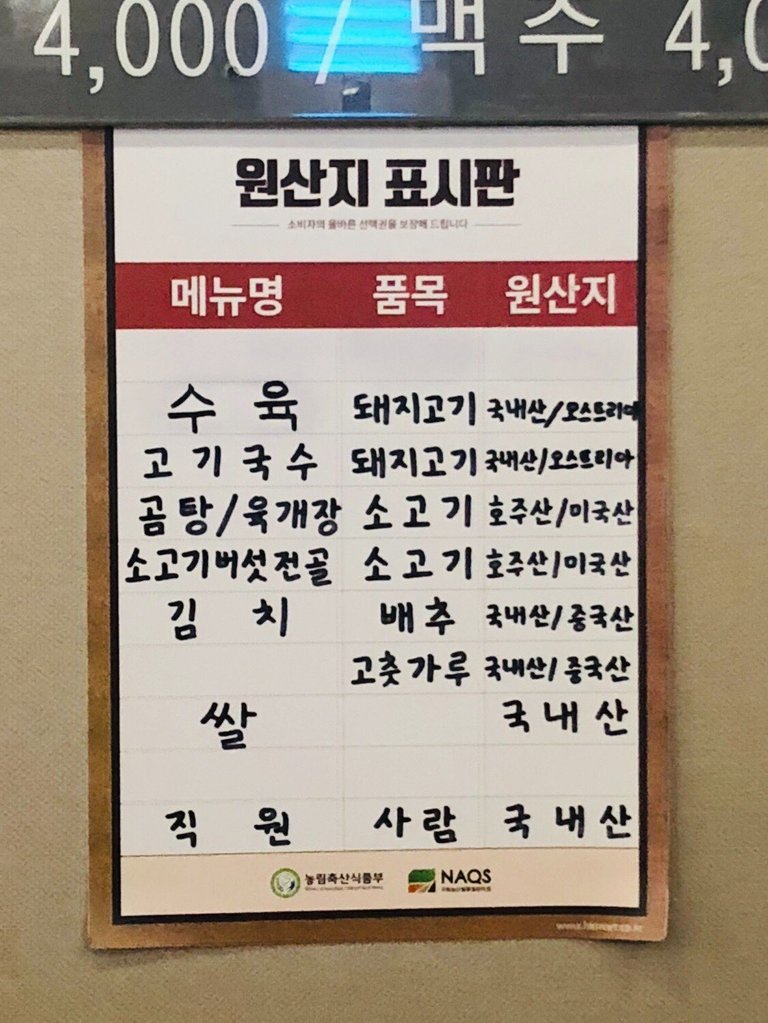 4,000 / 맥주 4,0
원산지 표시판
소비자의 올바른 선택권을 보장해 드립니다
메뉴명 품목 원산지
수육 돼지고기 국내산/오스트리아
고기국수 돼지고기 국내산/오스트리아
곰탕/육개장 소고기 호주산/미국산
소고기버섯전골 소고기 호주산/미국산
김치 배추 국내산/중국산
고춧가루 국내산/중국산
쌀 국내산
직원 사람 국내산
농림축산식품부 NAQS